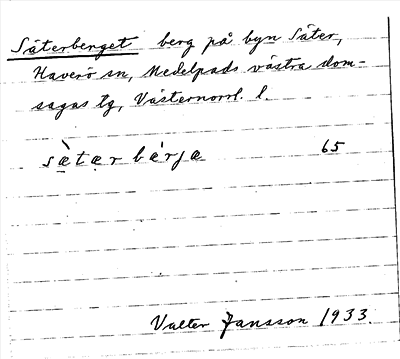 Säterberget berg på byn Säter,
Haverö sn, Medelpads västra dom-
sagas tg, Västernorrl. l.
sæ̀tær bær̀jæ 65
Valter Jansson 1933.